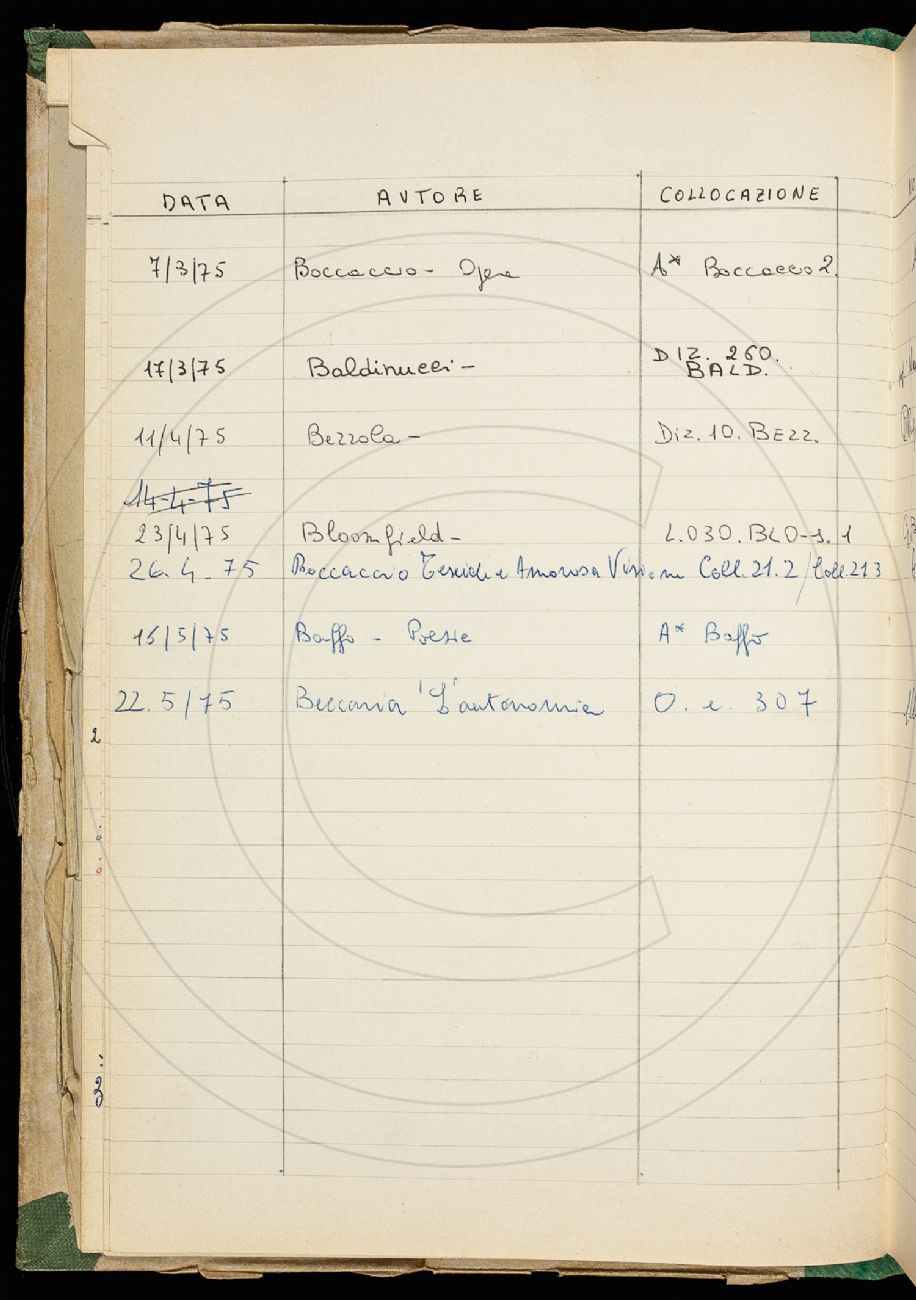 DATA AUTORE COLLOCAZIONE
7/3/75 Boccaccio - Opere A* Boccaccio 2.
17/3/75 Baldinucci - DIZ. 260.
BALD.
11/4/75 Bezzola - Diz. 10. BEZZ.
14-4-75
23/4/75 Bloomfield - L.030. BLO-s. 1
26. 4. 75 Boccaccio Teseida e Amorosa Visione Coll. 21.2 / Coll. 21 3
15/5/75 Baffo - Poesie A* Baffo
22. 5/75 Beccaria "L'autonomia O. e. 307
2